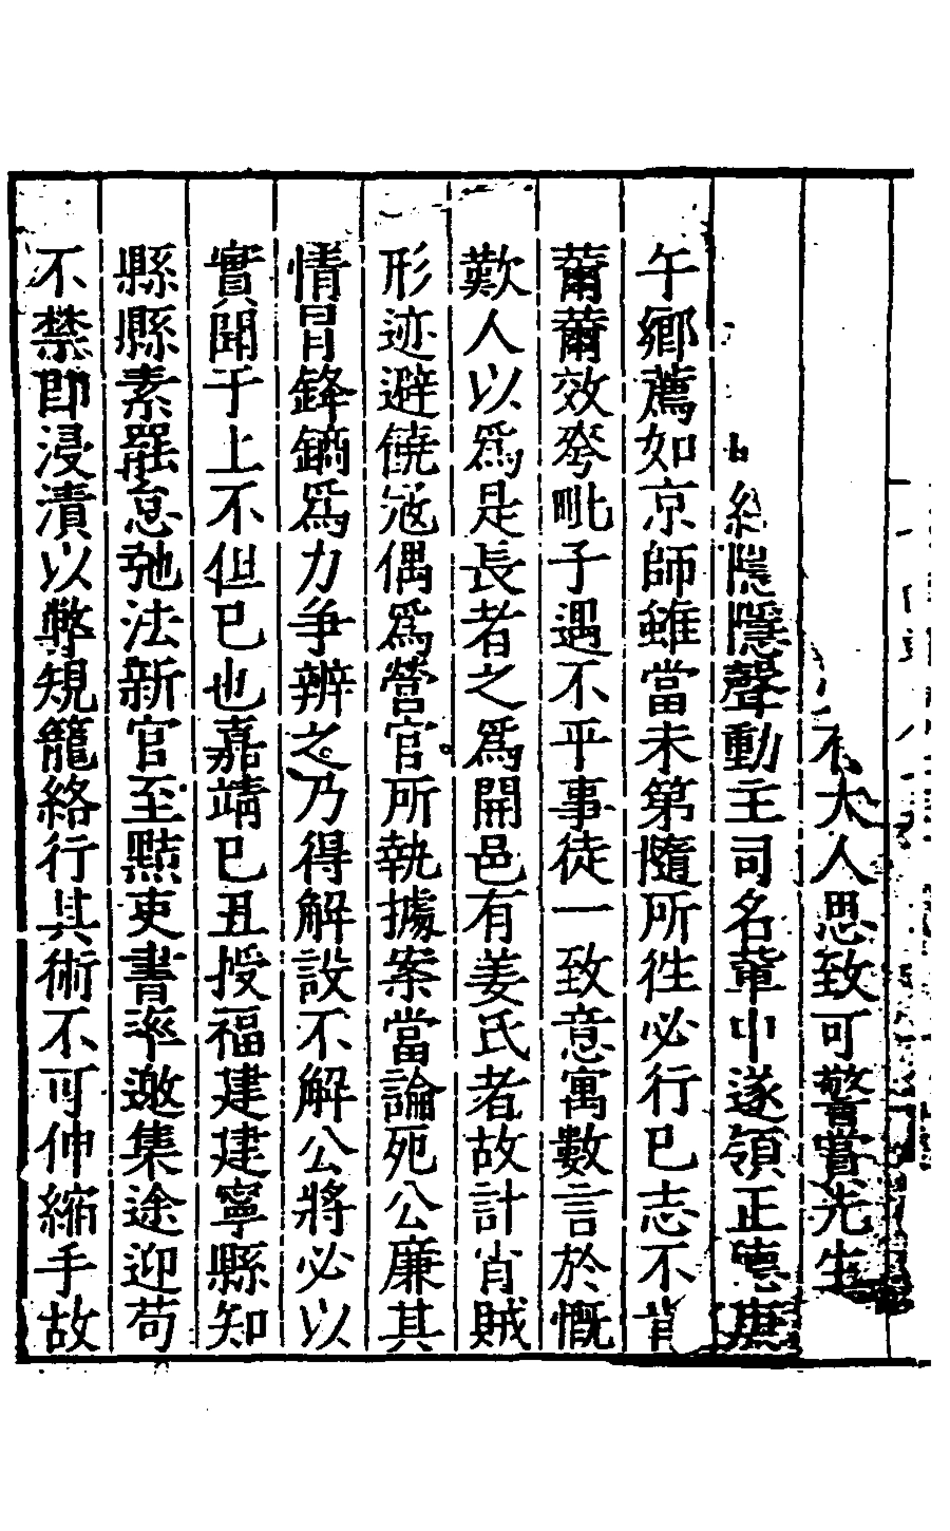 大人思致可警嘗先生
隱隱聲動主司名輩中遂領正德庚
午鄉薦如京師雖當未第隨所徃必行已志不肯
薾薾效癸毗子遇不平事徒一致意寓數言於慨
歎人以爲是長者之爲開邑有姜氏者故計肖賊
形迹避僥㓂偶爲營官所執據案當論死公廉其
情冒鋒鏑爲力爭辨之乃得解設不解公將必以
實聞于上不但已也嘉靖已丑授福建建寧縣知
縣縣素罷怠弛法新官至黠吏書率邀集途迎苟
不禁即浸漬以弊規籠絡行其術不可伸縮手故